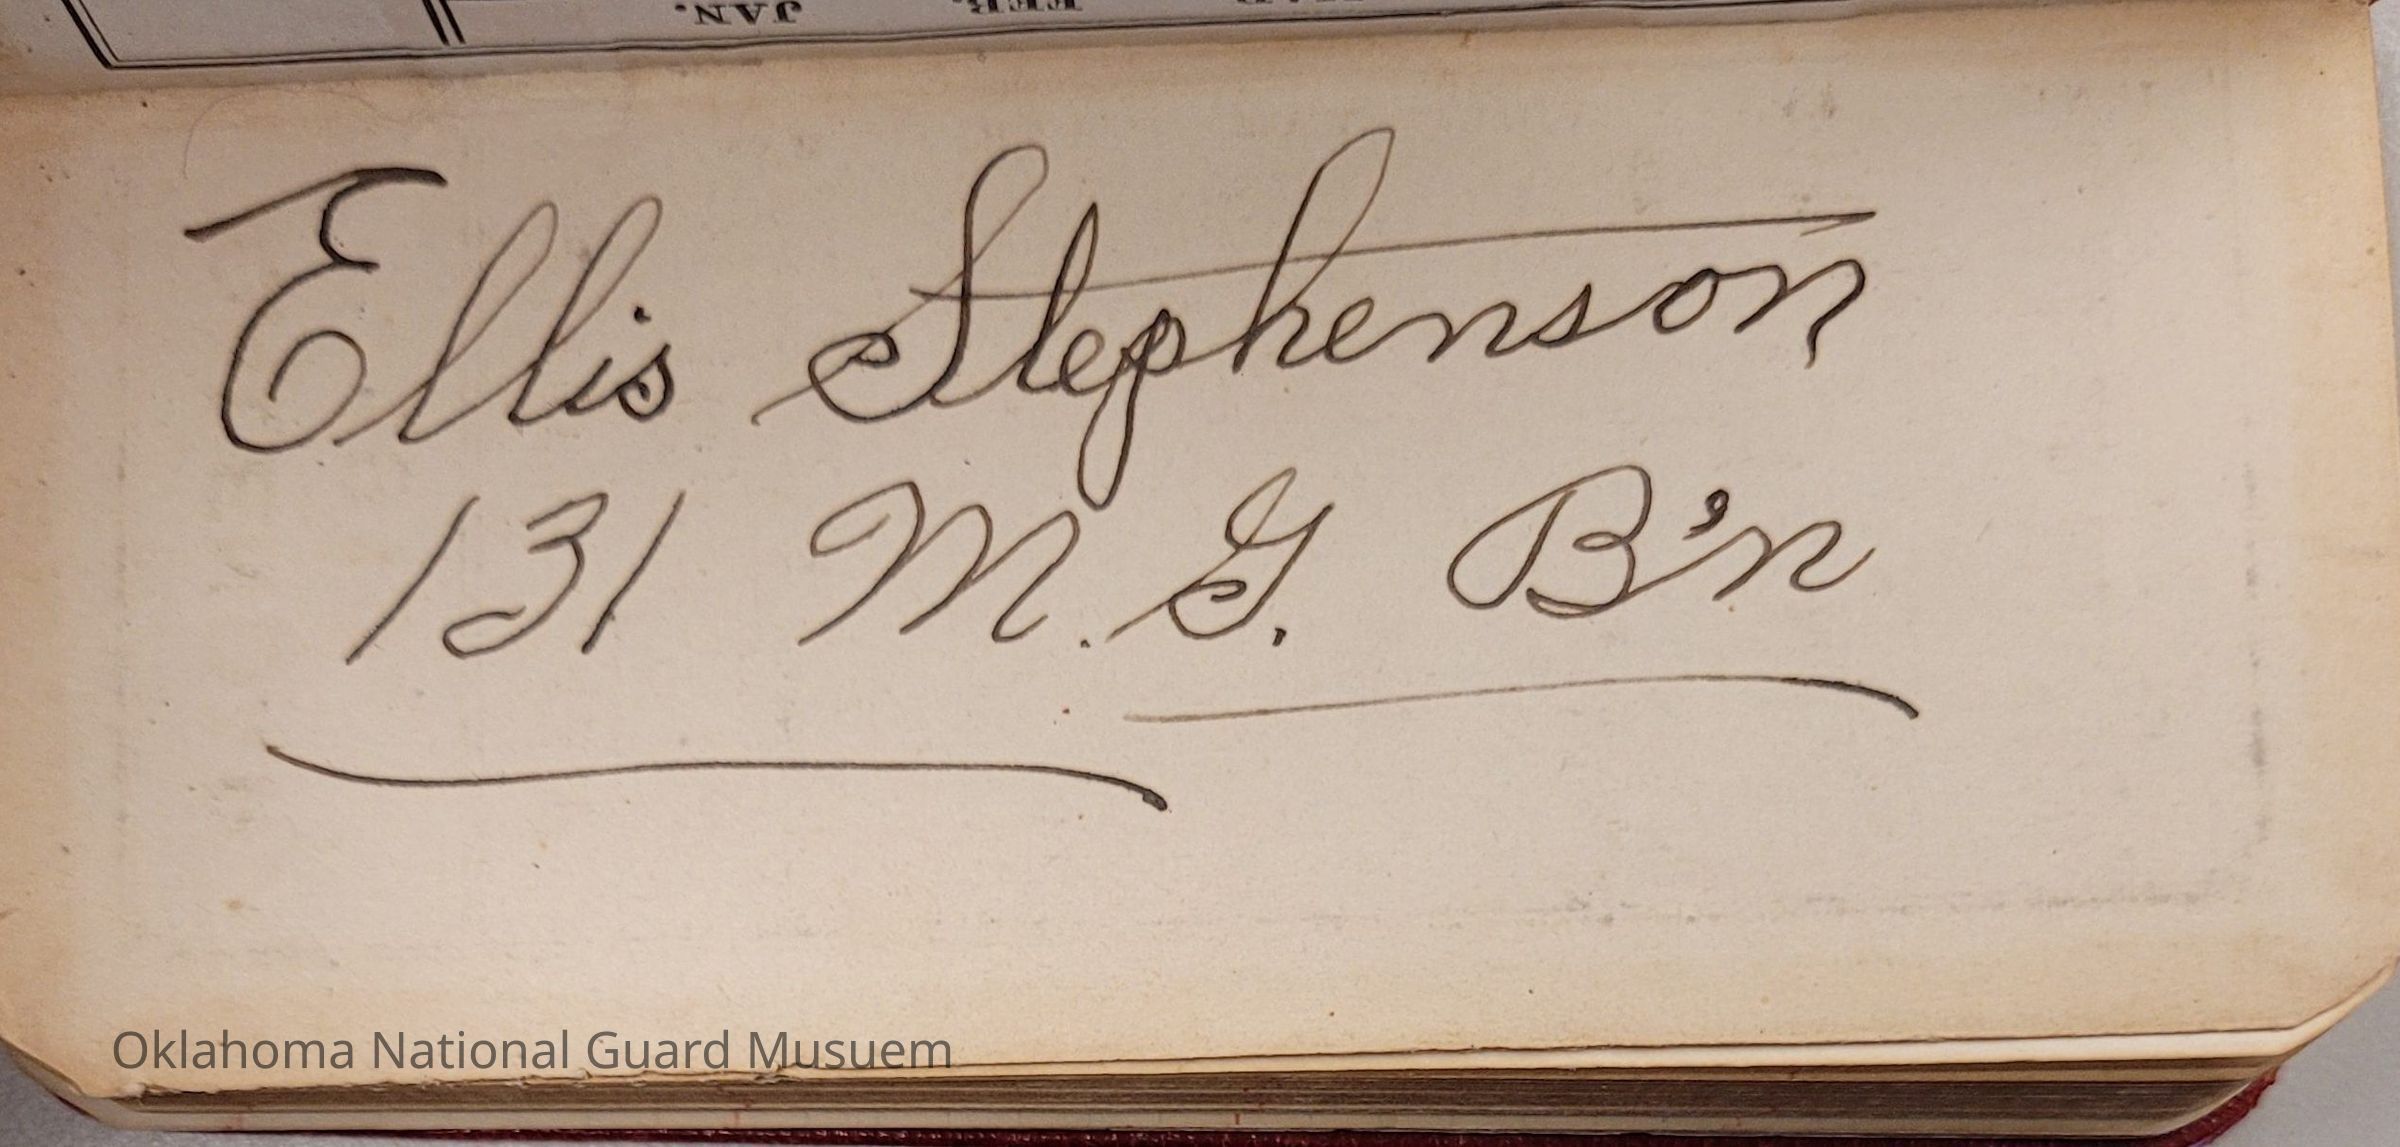 JAN. FEB.
Ellis Stephenson
131 M. G. B'n
Oklahoma National Guard Musuem